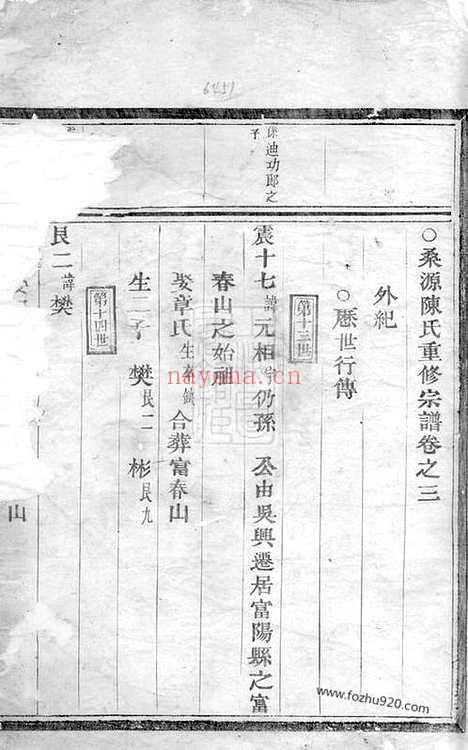 6451
迪功郎之
子
○桑源陳氏重修宗譜卷之三
外紀
○歷世行傳
第十三世
震十七 諱元相 字仍孫 公由吳興遷居富陽縣之富
春山之始祖
娶章氏 生卒缺 合葬富春山
生二子 樊 艮二 彬 艮九
第十四世
艮二 諱樊
山
nayona.cn
www.fozhu920.com